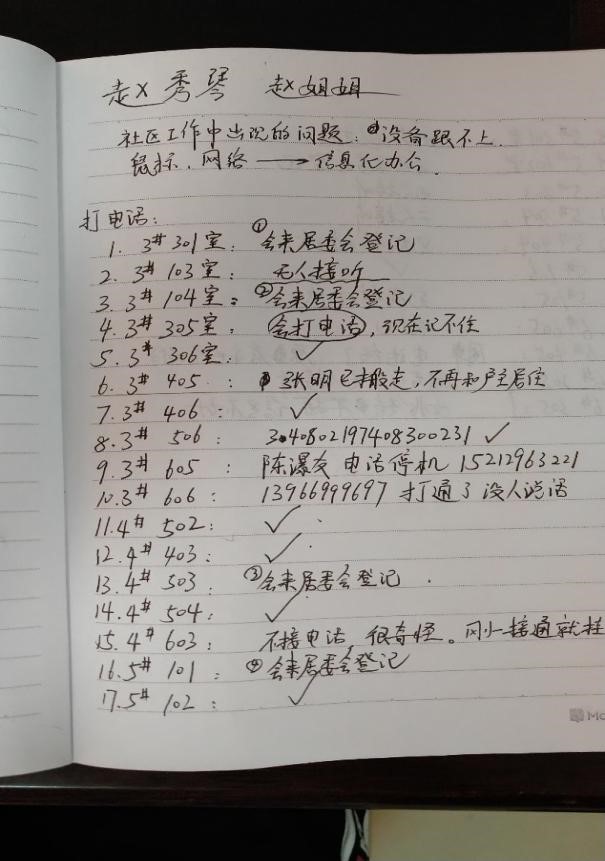 赵x 秀琴 赵姐姐
社区工作中出现的问题:①设备跟不上.
鼠标、网络 → 信息化办公.
打电话:
1. 3# 301室: ①会来居委会登记
2. 3# 103室: 无人接听
3. 3# 104室: ②会来居委会登记
4. 3# 305室: 会打电话, 现在记不住
5. 3# 306室. ✓
6. 3# 405. : 张明已搬走, 不再和户主居住
7. 3# 406 : ✓
8. 3# 506 : 340802197408300231 ✓
9. 3# 605 : 陈瀑友 电话停机 15212963221
10. 3# 606 : 13966999697 打通了没人说话
11. 4# 502: ✓
12. 4# 403: ✓
13. 4# 503: ③会来居委会登记
14. 4# 504: ✓
15. 4# 603: 不接电话, 很奇怪。刚一接通就挂
16. 5# 101 : ④会来居委会登记
17. 5# 102 : ✓